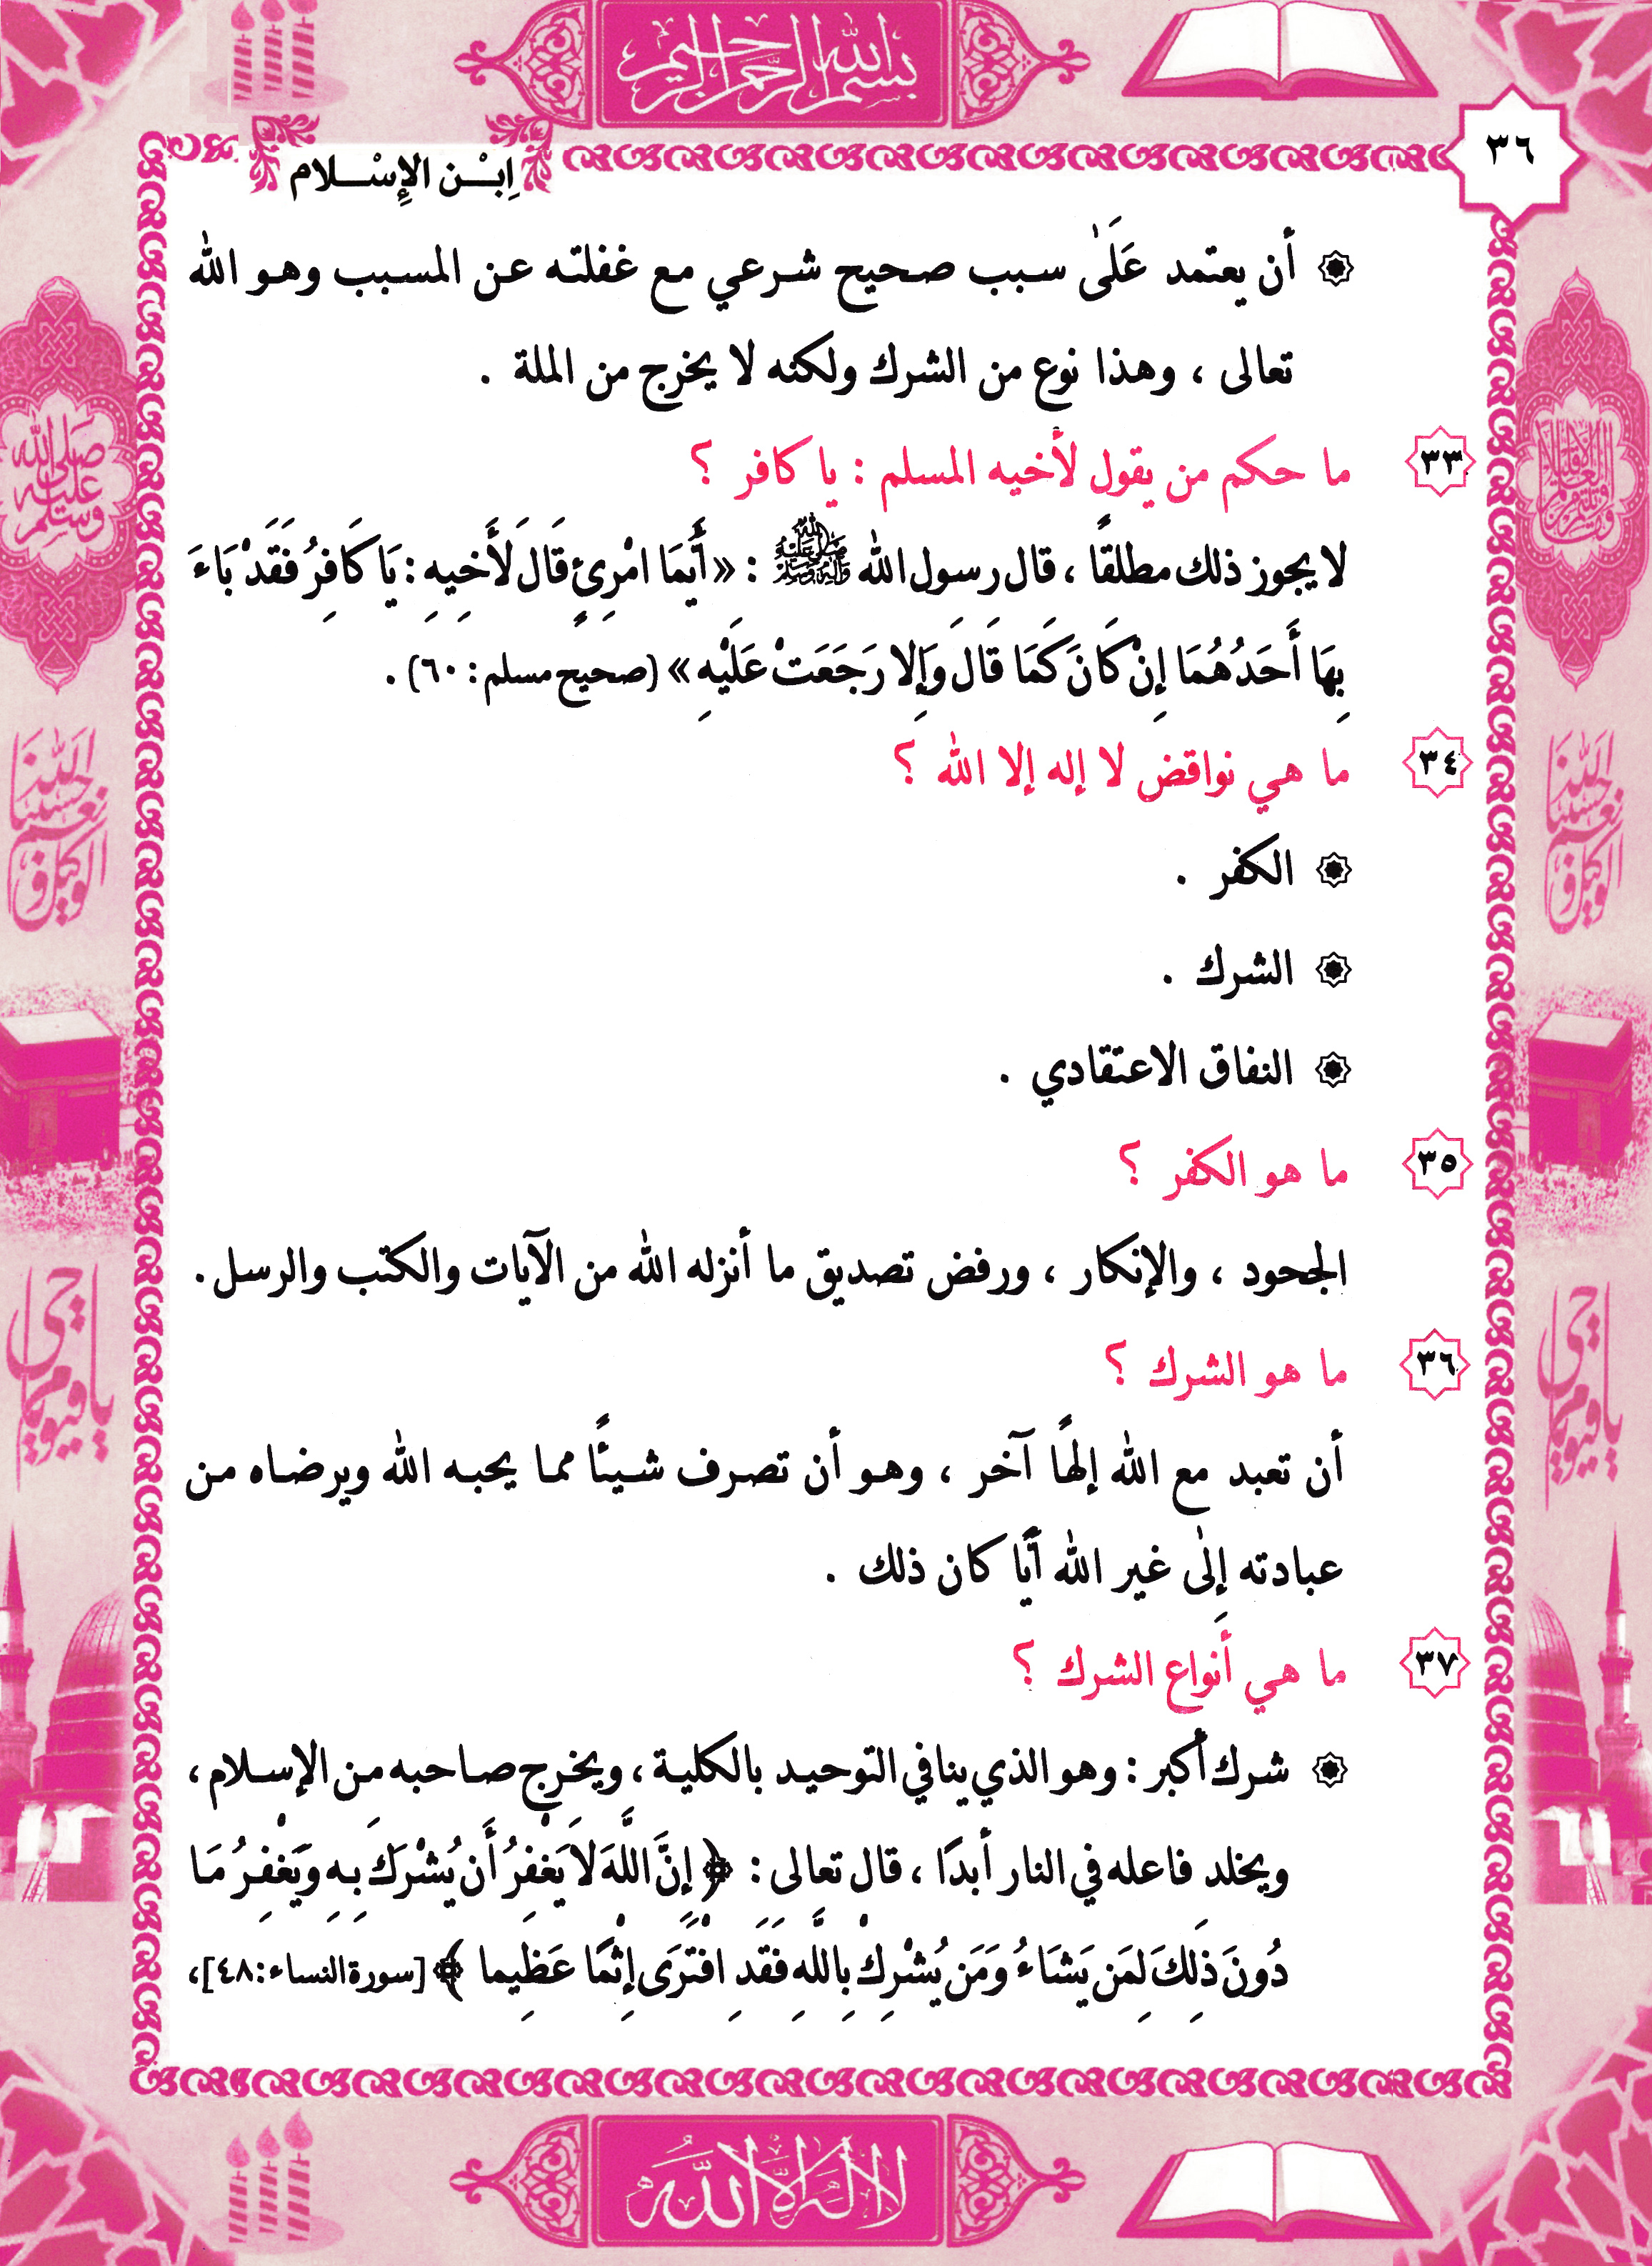 بسم الله الرحمن الرحيم
٣٦
اِبْن الإِسْلام
أن يعتمد عَلَىٰ سبب صحيح شرعي مع غفلته عن المسبب وهو الله
تعالى ، وهذا نوع من الشرك ولكنه لا يخرج من الملة .
٣٣ ما حكم من يقول لأخيه المسلم : يا كافر ؟
لا يجوز ذلك مطلقًا ، قال رسول الله ﷺ : « أَيُّمَا امْرِئٍ قَالَ لأَخِيهِ : يَا كَافِرُ فَقَدْ بَاءَ
بِهَا أَحَدُهُمَا إِنْ كَانَ كَمَا قَالَ وَإِلا رَجَعَتْ عَلَيْهِ » (صحيح مسلم : ٦٠) .
٣٤ ما هي نواقض لا إله إلا الله ؟
الكفر .
الشرك .
النفاق الاعتقادي .
٣٥ ما هو الكفر ؟
الجحود ، والإنكار ، ورفض تصديق ما أنزله الله من الآيات والكتب والرسل .
٣٦ ما هو الشرك ؟
أن تعبد مع الله إلهًا آخر ، وهو أن تصرف شيئًا مما يحبه الله ويرضاه من
عبادته إِلى غير الله أيًا كان ذلك .
٣٧ ما هي أنواع الشرك ؟
شرك أكبر : وهو الذي ينافي التوحيد بالكلية ، ويخرج صاحبه من الإسلام ،
ويخلد فاعله في النار أبدًا ، قال تعالى : ﴿ إِنَّ اللَّهَ لاَ يَغْفِرُ أَن يُشْرَكَ بِهِ وَيَغْفِرُ مَا
دُونَ ذَلِكَ لِمَن يَشَاءُ وَمَن يُشْرِكْ بِاللَّهِ فَقَدِ افْتَرَى إِثْمًا عَظِيما ﴾ [سورة النساء : ٤٨] ،
صلى الله عليه وسلم
حسبنا الله ونعم الوكيل
حسبنا الله ونعم الوكيل
يا حي يا قيوم
يا حي يا قيوم
لا إله إلا الله